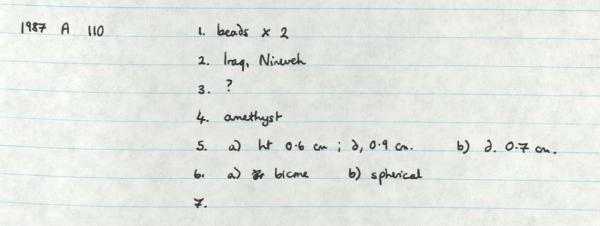 1987 A 110 1. beads x 2
2. Iraq, Nineveh
3. ?
4. amethyst
5. a) ht 0.6 cm ; ∂, 0.9 cm. b) ∂. 0.7 cm.
6. a) bicone b) spherical
7.